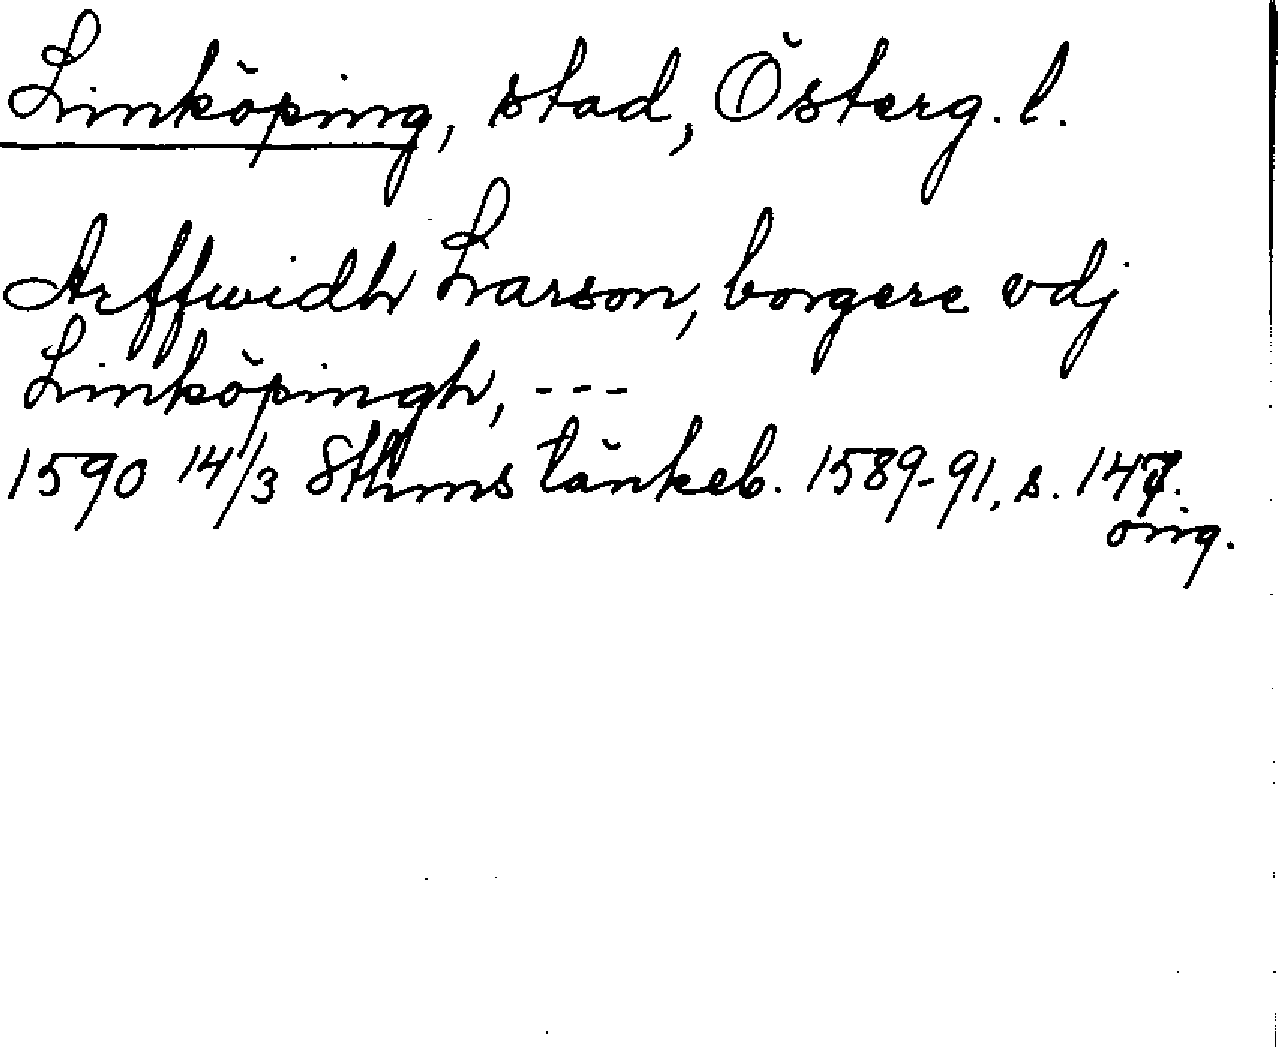 Linköping, stad, Österg. l.
Arffwidh Larson, borgere vdj
Linköpingh, ---
1590 14/3 Sthms tänkeb. 1589-91, s.
orig.